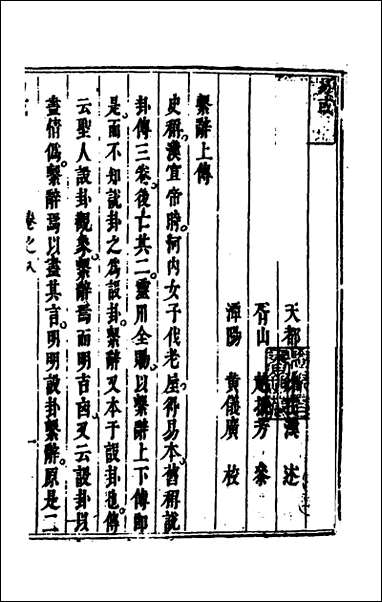 易或
天都 述
胥山 芳參
潭陽 黃儀廣校
繫辭上傳
史稱漢宣帝時河內女子伐老屋得易本舊稱說
卦傳三卷後亡其二靈用全賜以繫辭上下傳即
是而不知說卦之為設卦繫辭又本于設卦也傳
云聖人設卦觀象繫辭焉而明吉凶又云設卦以
盡情偽繫辭焉以盡其言明明設卦繫辭原是二
卷之八
一